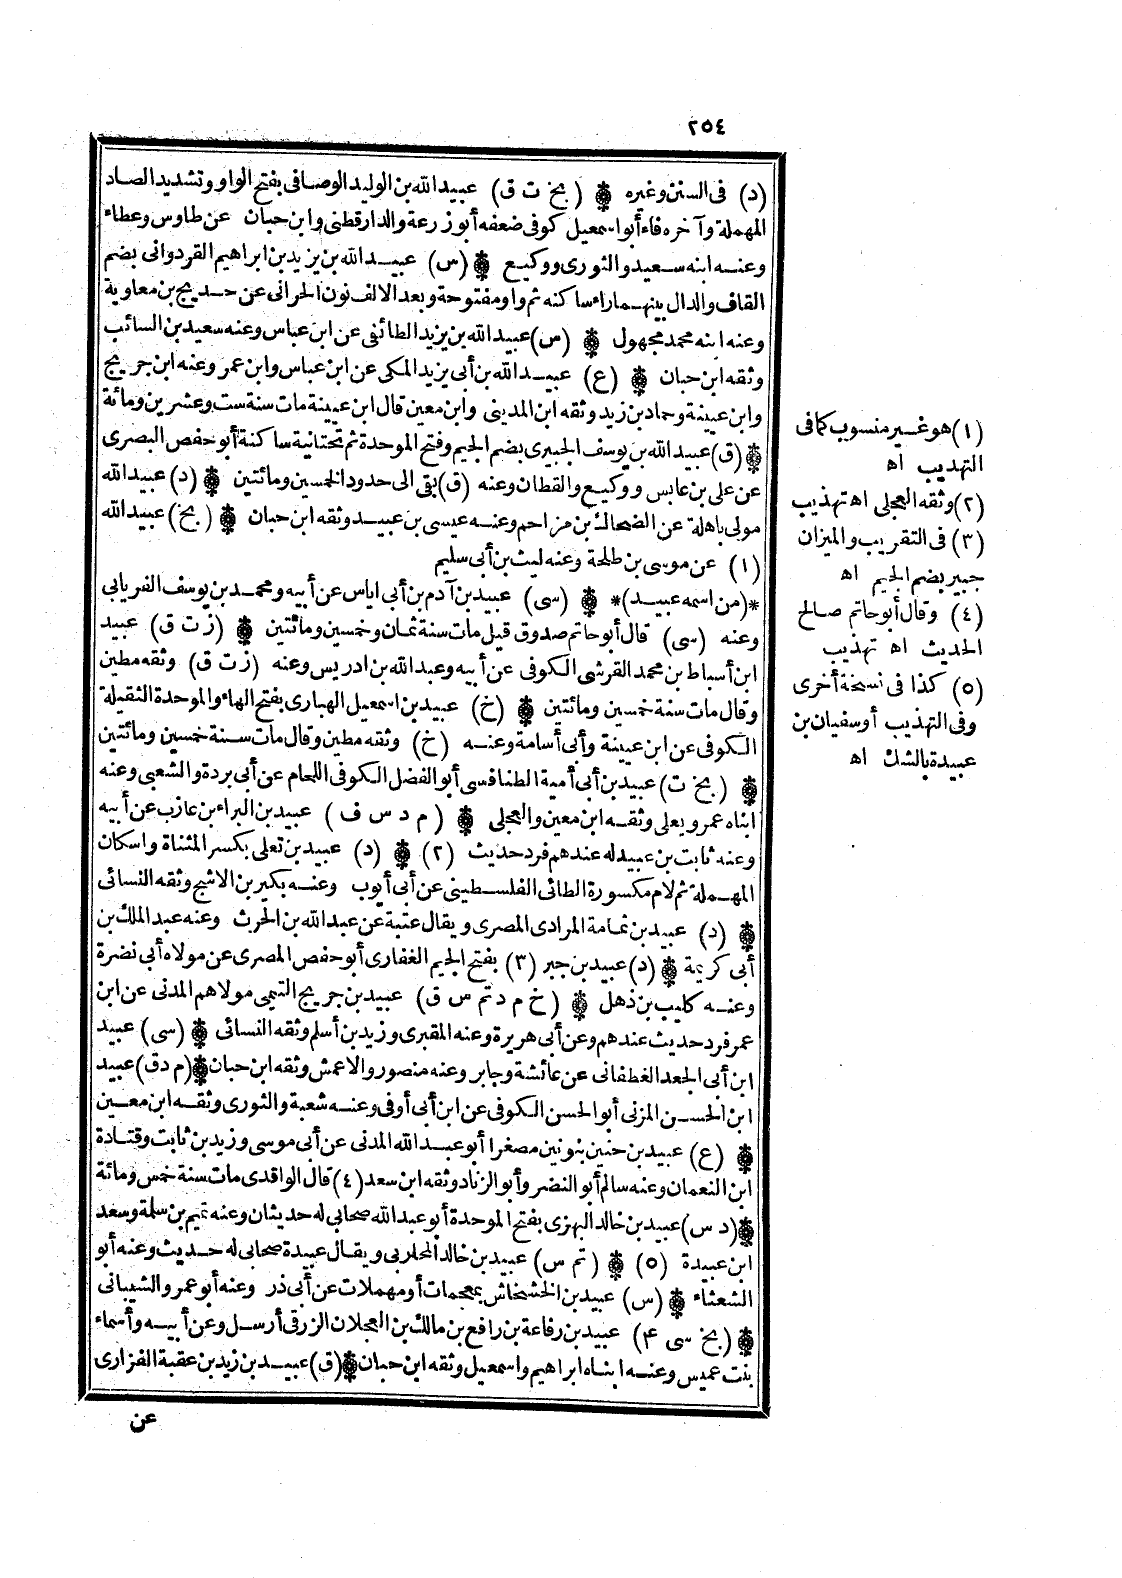 ٢٥٤
(د) فى السنن وغيره ❁ (بخ ت ق) عبيد الله بن الوليد الوصافى بفتح الواو وتشديد الصاد
المهملة وآخره فاء أبو اسمعيل كوفى ضعفه أبو زرعة والدارقطنى وابن حبان عن طاوس وعطاء
وعنه ابنه سعيد والثورى ووكيع ❁ (س) عبيد الله بن يزيد بن ابراهيم القردوانى بضم
القاف والدال بينهما راء ساكنه ثم واو مفتوحة وبعد الالف نون الحرانى عن حديج بن معاوية
وعنه ابنه محمد مجهول ❁ (س) عبيد الله بن يزيد الطائفى عن ابن عباس وعنه سعيد بن السائب
وثقه ابن حبان ❁ (ع) عبيد الله بن أبى يزيد المكى عن ابن عباس وابن عمر وعنه ابن جريج
وابن عيينة وحماد بن زيد وثقه ابن المدينى وابن معين قال ابن عيينة مات سنة ست وعشرين ومائة
❁ (ق) عبيد الله بن يوسف الجبيرى بضم الجيم وفتح الموحدة ثم تحتانية ساكنة أبو حفص البصرى
عن على بن عابس ووكيع والقطان وعنه (ق) بقى الى حدود الخمسين ومائتين ❁ (د) عبيد الله
مولى باهلة عن الضحاك بن مزاحم وعنه عيسى بن عبيد وثقه ابن حبان ❁ (بخ) عبيد الله
(١) عن موسى بن طلحة وعنه ليث بن أبى سليم
*(من اسمه عبيد)* ❁ (سى) عبيد بن آدم بن أبى اياس عن أبيه ومحمد بن يوسف الفريابى
وعنه (سى) قال أبو حاتم صدوق قيل مات سنة ثمان وخمسين ومائتين ❁ (ز ت ق) عبيد
ابن أسباط بن محمد القرشى الكوفى عن أبيه وعبد الله بن ادريس وعنه (ز ت ق) وثقه مطين
وقال مات سنة خمسين ومائتين ❁ (خ) عبيد بن اسمعيل الهبارى بفتح الهاء والموحدة الثقيلة
الكوفى عن ابن عيينة وأبى أسامة وعنه (خ) وثقه مطين وقال مات سنة خمسين ومائتين
❁ (بخ ت) عبيد بن أبى أمية الطنافسى أبو الفضل الكوفى اللحام عن أبى بردة والشعبى وعنه
ابناه عمر ويعلى وثقه ابن معين والعجلى ❁ (م د س ق) عبيد بن البراء بن عازب عن أبيه
وعنه ثابت بن عبيد له عندهم فرد حديث (٢) ❁ (د) عبيد بن تعلى بكسر المثناة واسكان
المهملة ثم لام مكسورة الطائى الفلسطينى عن أبى أيوب وعنه بكير بن الاشج وثقه النسائى
❁ (د) عبيد بن ثمامة المرادى المصرى ويقال عتبة عن عبد الله بن الحرث وعنه عبد الملك بن
أبى كريمة ❁ (د) عبيد بن جبر (٣) بفتح الجيم الغفارى أبو حفص المصرى عن مولاه أبى نضرة
وعنه كليب بن ذهل ❁ (خ م د تم س ق) عبيد بن جريج التيمى مولاهم المدنى عن ابن
عمر فرد حديث عندهم وعن أبى هريرة وعنه المقبرى وزيد بن أسلم وثقه النسائى ❁ (سى) عبيد
ابن أبى الجعد الغطفانى عن عائشة وجابر وعنه منصور والاعمش وثقه ابن حبان ❁ (م د ق) عبيد
ابن الحسن المزنى أبو الحسن الكوفى عن ابن أبى أوفى وعنه شعبة والثورى وثقه ابن معين
❁ (ع) عبيد بن حنين بنونين مصغرا أبو عبد الله المدنى عن أبى موسى وزيد بن ثابت وقتادة
ابن النعمان وعنه سالم أبو النضر وأبو الزناد وثقه ابن سعد (٤) قال الواقدى مات سنة خمس ومائة
❁ (د س) عبيد بن خالد البهزى بفتح الموحدة أبو عبد الله صحابى له حديثان وعنه تميم بن سلمة وسعد
ابن عبيدة (٥) ❁ (تم س) عبيد بن خالد المحاربى ويقال عبيدة صحابى له حديث وعنه أبو
الشعثاء ❁ (س) عبيد بن الخشخاش بمعجمات أو مهملات عن أبى ذر وعنه أبو عمرو الشيبانى
❁ (بخ سى ٤) عبيد بن رفاعة بن رافع بن مالك بن العجلان الزرقى أرسل وعن أبيه وأسماء
بنت عميس وعنه ابناه ابراهيم واسمعيل وثقه ابن حبان ❁ (ق) عبيد بن زيد بن عقبة الفزارى
عن
(١) هو غير منسوب كما فى
التهذيب اه
(٢) وثقه العجلى اه تهذيب
(٣) فى التقريب والميزان
جبير بضم الجيم اه
(٤) وقال أبو حاتم صالح
الحديث اه تهذيب
(٥) كذا فى نسخة أخرى
وفى التهذيب أو سفيان بن
عبيدة بالشك اه